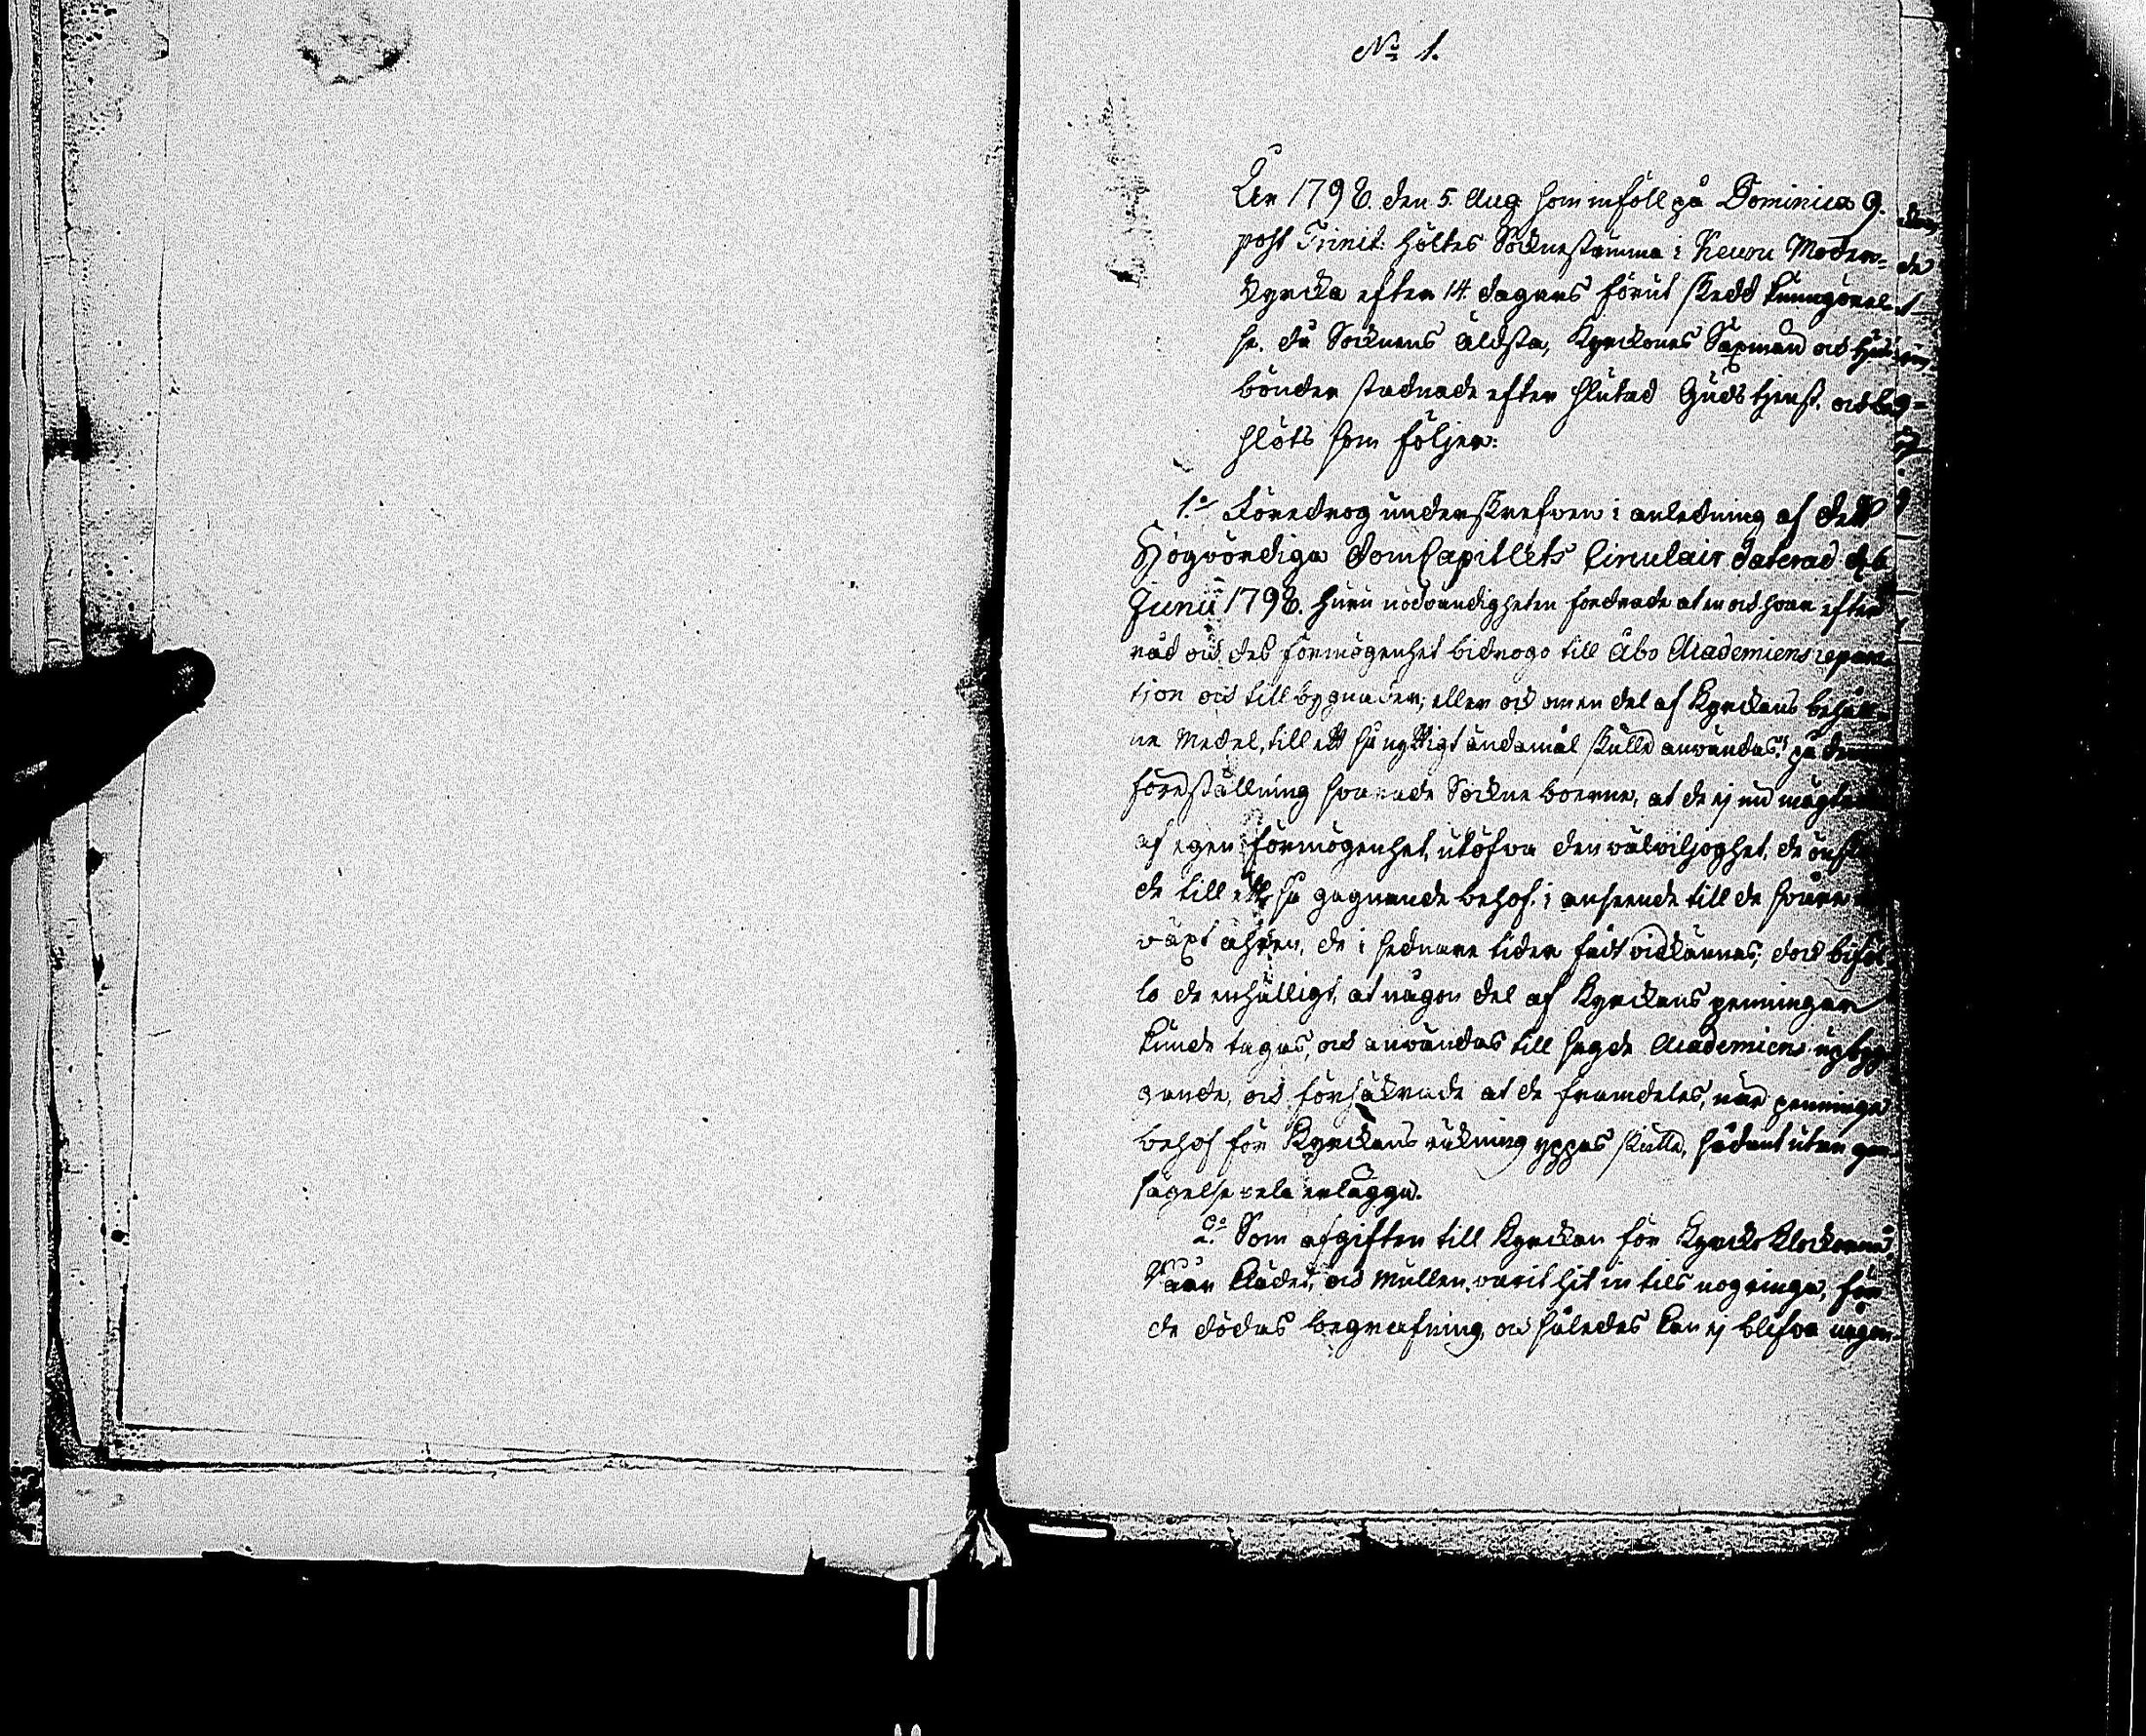 No 1.
År 1798. den 5. Aug. som inföll på Dominica 9.
post Trinit: höltes Sockne stämma i Keuru Moder-
Kyrcka efter 14. dagars förut skedd kunngörel-
se. då Socknens äldsta, Kyrckones Sexmän och
bönder stadnade efter slutad Gudstjenst. och be-
slöts som följer:
1:o Föredrog underskrefven i anledning af dett
Högvördiga DomCapitlets Circulair daterad d. 6
Junii 1798. huru nödvändigheten fordrade at en och hvar efter
råd och des förmögenhet bidrogo till Åbo Academiens repara-
tion och till bygnader; eller och om en del af Kyrckans behåll-
ne Medel, till ett så nyttigt ändamål skulle användas? på denna
föreställning svarade Sockne boerne, at de ej nu mägta
af egen förmögenhet, utöfva den välviljoghet, de önska-
de till ett så gagnande behof. i anseende till de svåre
växt åhren, de i sednare tider fådt vidkännas; dock biföl-
lo de enhälligt, at någon del af Kyrckans penningar
kunde tagas, och användas till sagde Academiens upbyg-
gande, och försäkrade at de framdeles, när penninge
behof för Kyrckans räkning yppas skulle, sådant utan gen-
sägelse vela erlägga.
2:o Som afgiften till Kyrckan för Kyrcko Klockorna,
Baar klädet, och Mullen, varit hit in tils nog ringa, för
de dödas begrafning, och således kan ej blifva